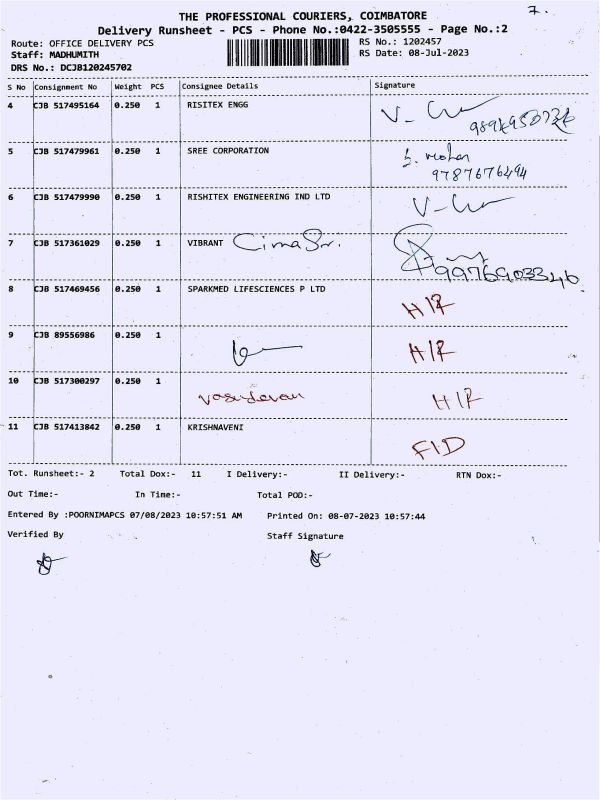 7.
THE PROFESSIONAL COURIERS, COIMBATORE
Delivery Runsheet - PCS - Phone No.:0422-3505555 - Page No.:2
Route: OFFICE DELIVERY PCS
RS No.: 1202457
Staff: MADHUMITH
RS Date: 08-Jul-2023
DRS No.: DCJB120245702
S No Consignment No Weight PCS Consignee Details Signature
4 CJB 517495164 0.250 1 RISITEX ENGG
5 CJB 517479961 0.250 1 SREE CORPORATION
9787676494
6 CJB 517479990 0.250 1 RISHITEX ENGINEERING IND LTD
7 CJB 517361029 0.250 1 VIBRANT
9976903346
8 CJB 517469456 0.250 1 SPARKMED LIFESCIENCES P LTD
H/R
9 CJB 89556986 0.250 1 H/R
10 CJB 517300297 0.250 1 Vasudevan H/R
11 CJB 517413842 0.250 1 KRISHNAVENI
F/D
Tot. Runsheet:- 2 Total Dox:- 11 I Delivery:- II Delivery:- RTN Dox:-
Out Time:- In Time:- Total POD:-
Entered By :POORNIMAPCS 07/08/2023 10:57:51 AM Printed On: 08-07-2023 10:57:44
Verified By Staff Signature